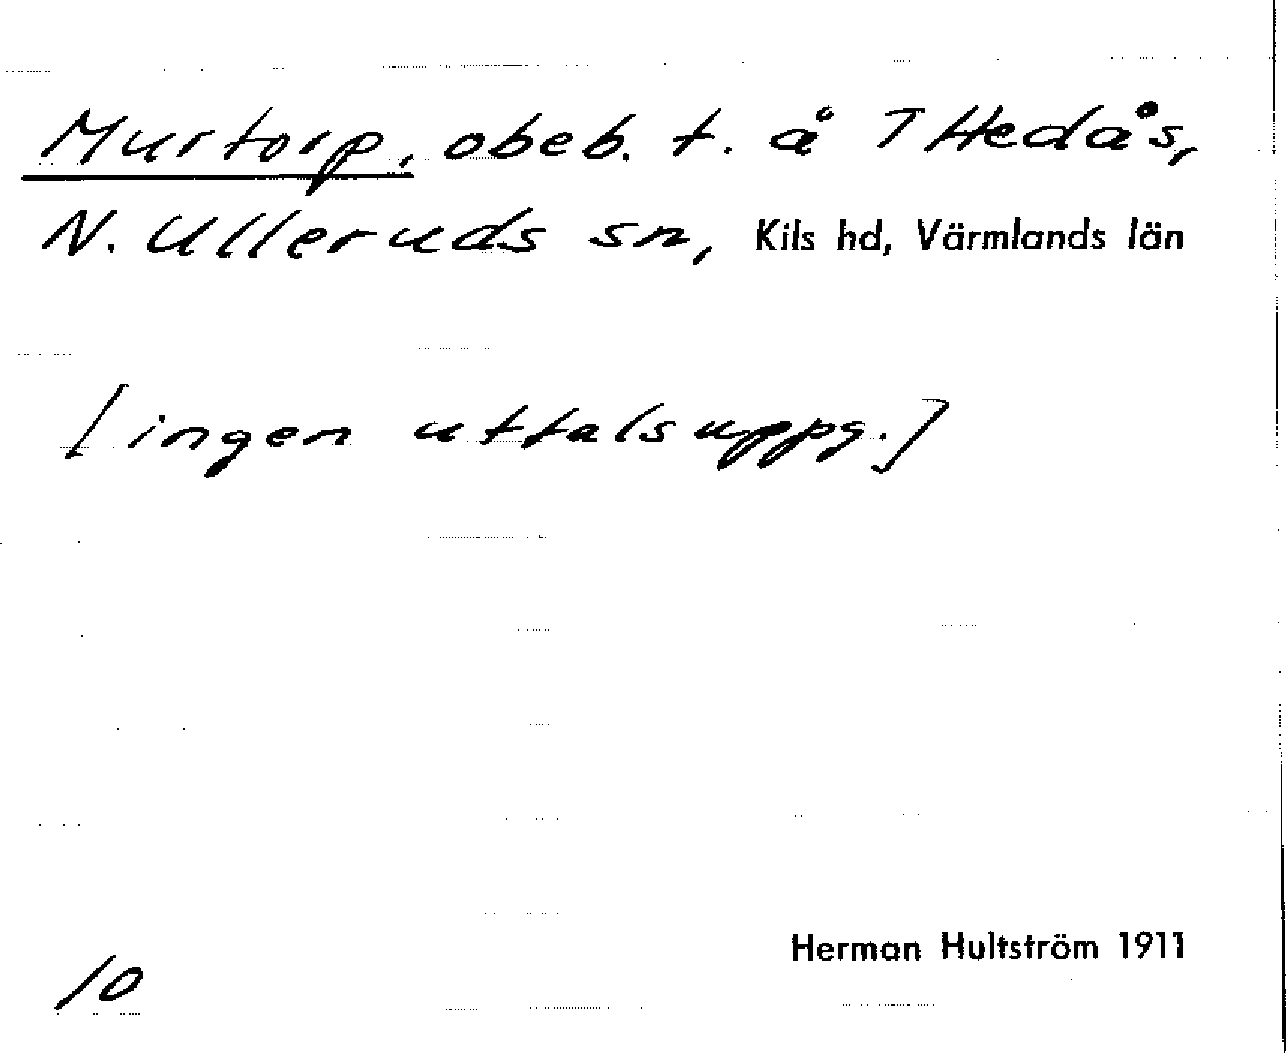 Murtorp, obeb. t. å 7 Hedås,
N. Ulleruds sn, Kils hd, Värmlands län
[ingen uttalsuppg.]
Herman Hultström 1911
10